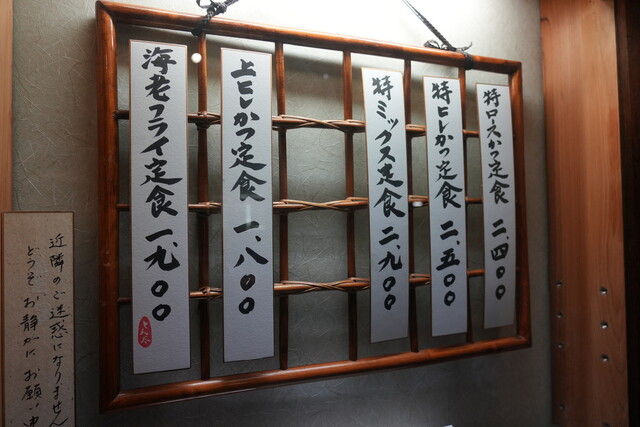 特ロースかつ定食 二、四〇〇
特ヒレかつ定食 二、五〇〇
特ミックス定食 二、九〇〇
上ヒレかつ定食 一、八〇〇
海老フライ定食 一、九〇〇
近隣のご迷惑になりません
どうぞお静かにお願い申